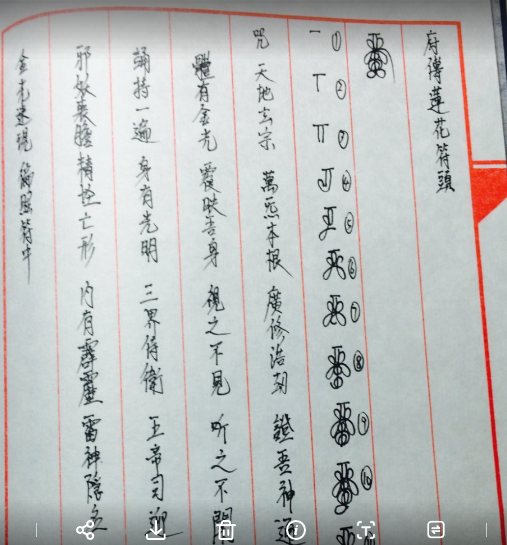 府傳蓮花符頭
① ② ③ ④ ⑤ ⑥ ⑦ ⑧ ⑨ ⑩
咒 天地玄宗 萬炁本根 廣修浩劫 鐙吾神通
體有金光 覆映吾身 視之不見 听之不聞
誦持一遍 身有光明 三界侍衛 五帝司迎
邪妖喪膽 精怪亡形 內有霹靂 雷神隱名
金光速現 徧照符中